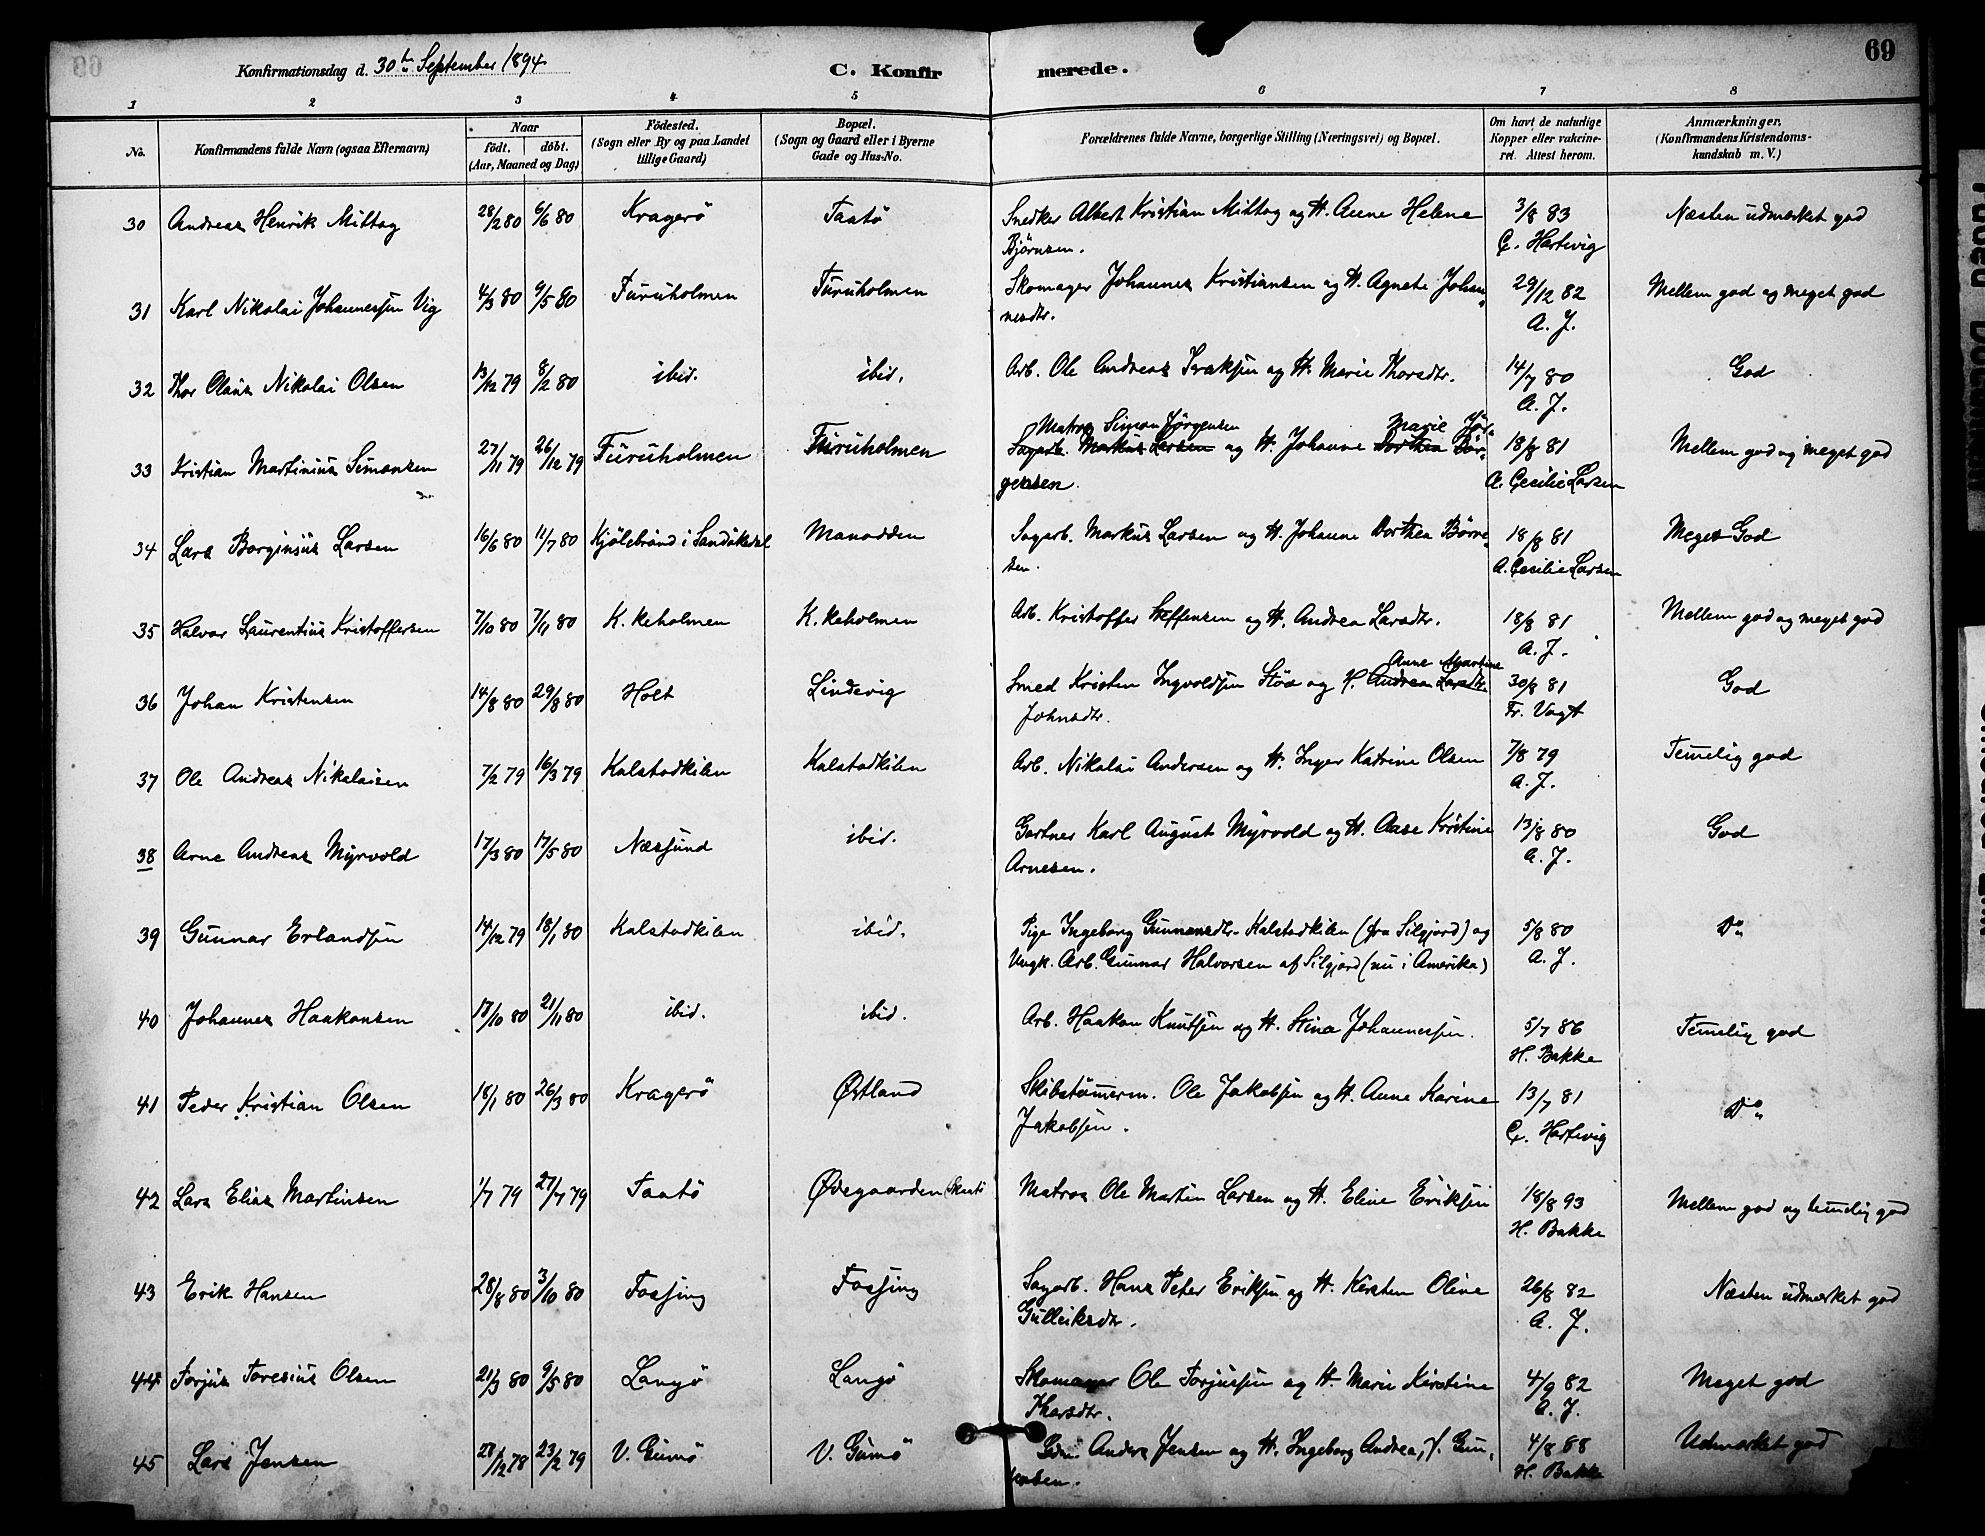 Konfirmationsdag d. 30te September 1894
C. Konfirmerede.
69
1 2 3 4 5 6 7 8
No.
Konfirmandens fulde Navn (ogsaa Efternavn)
Naar
født. døbt.
(Aar, Maaned og Dag)
Fødested.
(Sogn eller By og paa Landet
tillige Gaard)
Bopæl.
(Sogn og Gaard eller i Byerne
Gade og Hus-No.
Forældrenes fulde Navne, borgerlige Stilling (Næringsvei) og Bopæl.
Om havt de naturlige
Kopper eller vakcine-
ret. Attest herom.
Anmærkninger.
(Konfirmandens Kristendoms-
kundskab m. V.)
30 Andreas Henrik Mittag 28/2 80 6/6 80 Kragerö Taatö Snedker Albert Kristian Mittag og H. Anne Helene 3/8 83 Næsten udmærket god
Bjørnsen. C. Hartvig
31 Karl Nikolai Johannessen Vig 4/3 80 9/5 80 Furuholmen Furuholmen Skomager Johannes Kristiansen og H. Agnete Johan- 29/12 82 Mellem god og meget god
nesdtr. A. J.
32 Thor Olaus Nikolai Olsen 13/12 79 8/2 80 ibid. ibid. Arb. Ole Andreas Isaksen og H. Marie Thorsdtr. 14/7 80 God
A. J.
Matros Simon Jørgensen Marie Jör-
33 Kristian Martinius Simonsen 27/11 79 26/12 79 Furuholmen Furuholmen Sagarb. Markus Larsen og H. Johanne Dorthea Bör- 18/8 81 Mellem god og meget god
gensen. A. Cecilie Larsen
34 Lars Borginius Larsen 16/6 80 11/7 80 Kjölebrönd i Sandökedal Manodden Sagarb. Markus Larsen og H. Johanne Dorthea Börre- 18/8 81 Meget God
sen. A. Cecilie Larsen
35 Halvor Laurentius Kristoffersen 7/10 80 7/11 80 K. keholmen K. keholmen Arb. Kristoffer Steffensen og H. Andrea Larsdtr. 18/8 81 Mellem god og meget god
A. J.
Anne Martine
36 Johan Kristensen 14/8 80 29/8 80 Holt Lindevig Smed Kristen Ingvoldsen Stöa og H. Andrea Larsdtr. 30/8 81 God
Johnsdtr. Fr. Vogt
37 Ole Andreas Nikolaisen 7/2 79 16/3 79 Kalstadkilen Kalstadkilen Arb. Nikolai Andersen og H. Inger Katrine Olsen 7/8 79 Temelig god
A. J.
38 Arne Andreas Myrvold 17/3 80 17/5 80 Næssund ibid. Gartner Karl August Myrvold og H. Aase Kristine 13/8 80 God
Arnesen. A. J.
39 Gunnar Erlandsen 14/12 79 18/1 80 Kalstadkilen ibid. Pige Ingeborg Gunnarsdtr. Kalstadkilen (fra Silgjord) og 5/8 80 Do
Ungk. Arb. Gunnar Halvorsen af Silgjord (nu i Amerika) A. J.
40 Johannes Haakonsen 17/10 80 21/11 80 ibid. ibid. Arb. Haakon Knutsen og H. Stina Johannessen. 5/7 86 Temelig god
H. Bakke
41 Peder Kristian Olsen 18/1 80 26/3 80 Kragerö Østland Skibstömerm. Ole Jakobsen og H. Anne Karine 13/7 81 Do
Jakobsen. C. Hartvig
42 Lars Elias Martinsen 1/7 79 27/7 79 Taatö Ødegaarden (Skaatö Matros Ole Martin Larsen og H. Eline Eriksen 18/8 93 Mellem god og temelig god
H. Bakke
43 Erik Hansen 28/8 80 3/10 80 Fossing Fossing Sagarb. Hans Peter Eriksen og H. Kirsten Oline 26/8 82 Næsten udmærket god
Gulleiksdtr. A. J.
44 Torjus Toresius Olsen 21/3 80 9/5 80 Langö Langö Skomager Ole Torjussen og H. Marie Kirstine 4/9 82 Meget god
Tharsdtr. A. J.
45 Lars Jensen 28/12 78 23/2 79 V. Gumö V. Gumö Gdm. Anders Jensen og H. Ingeborg Andrea, f. Gun- 4/8 88 Udmærket god
H. Bakke